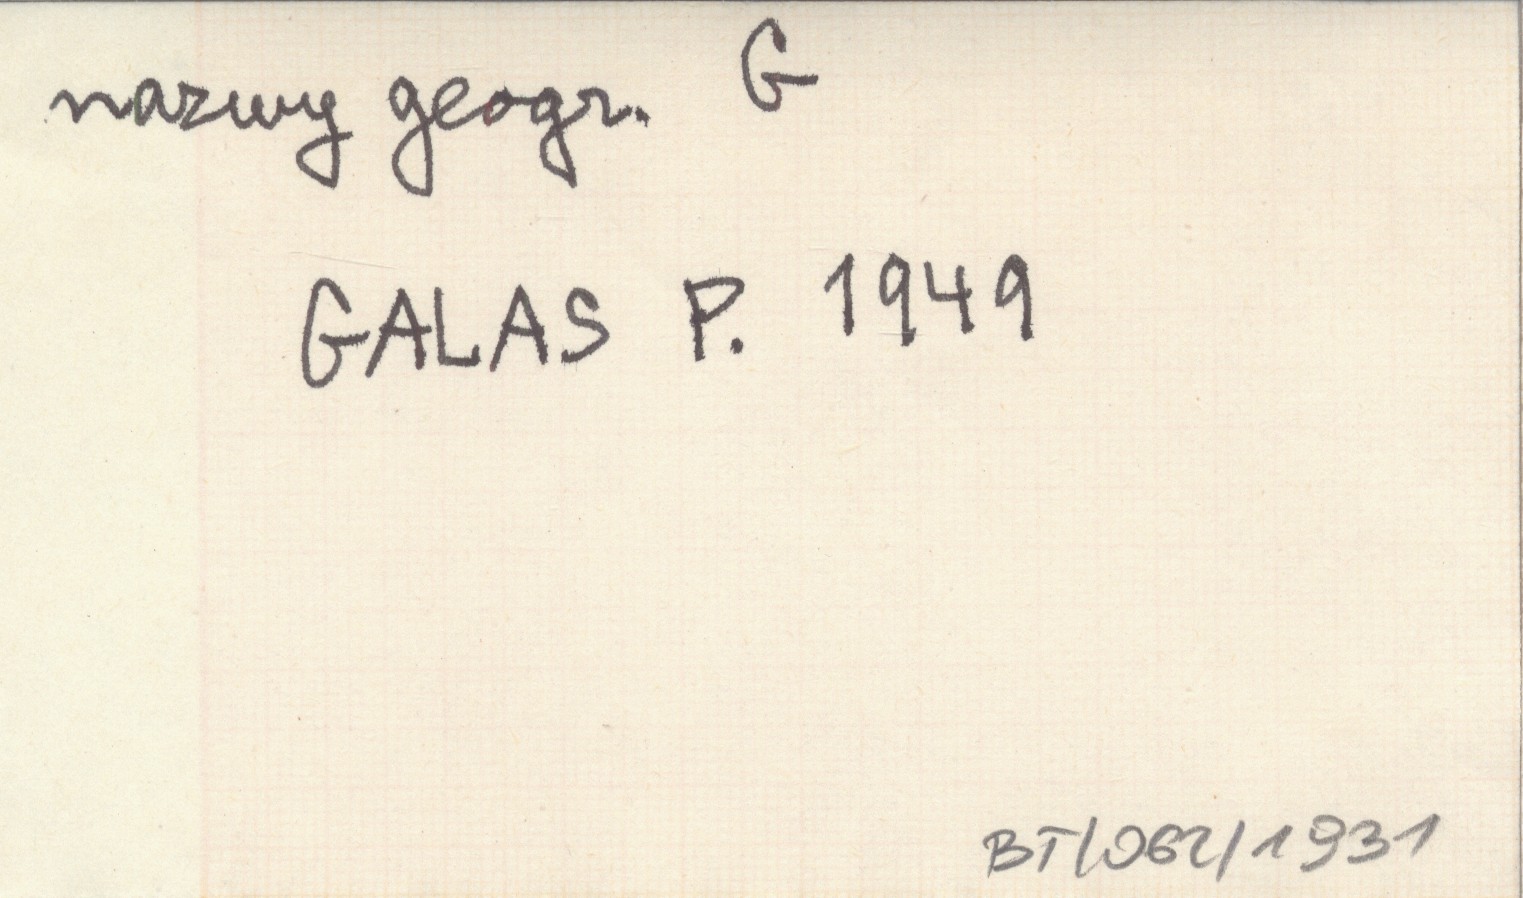 nazwy geogr. G
GALAS P. 1949
BT/062/1931